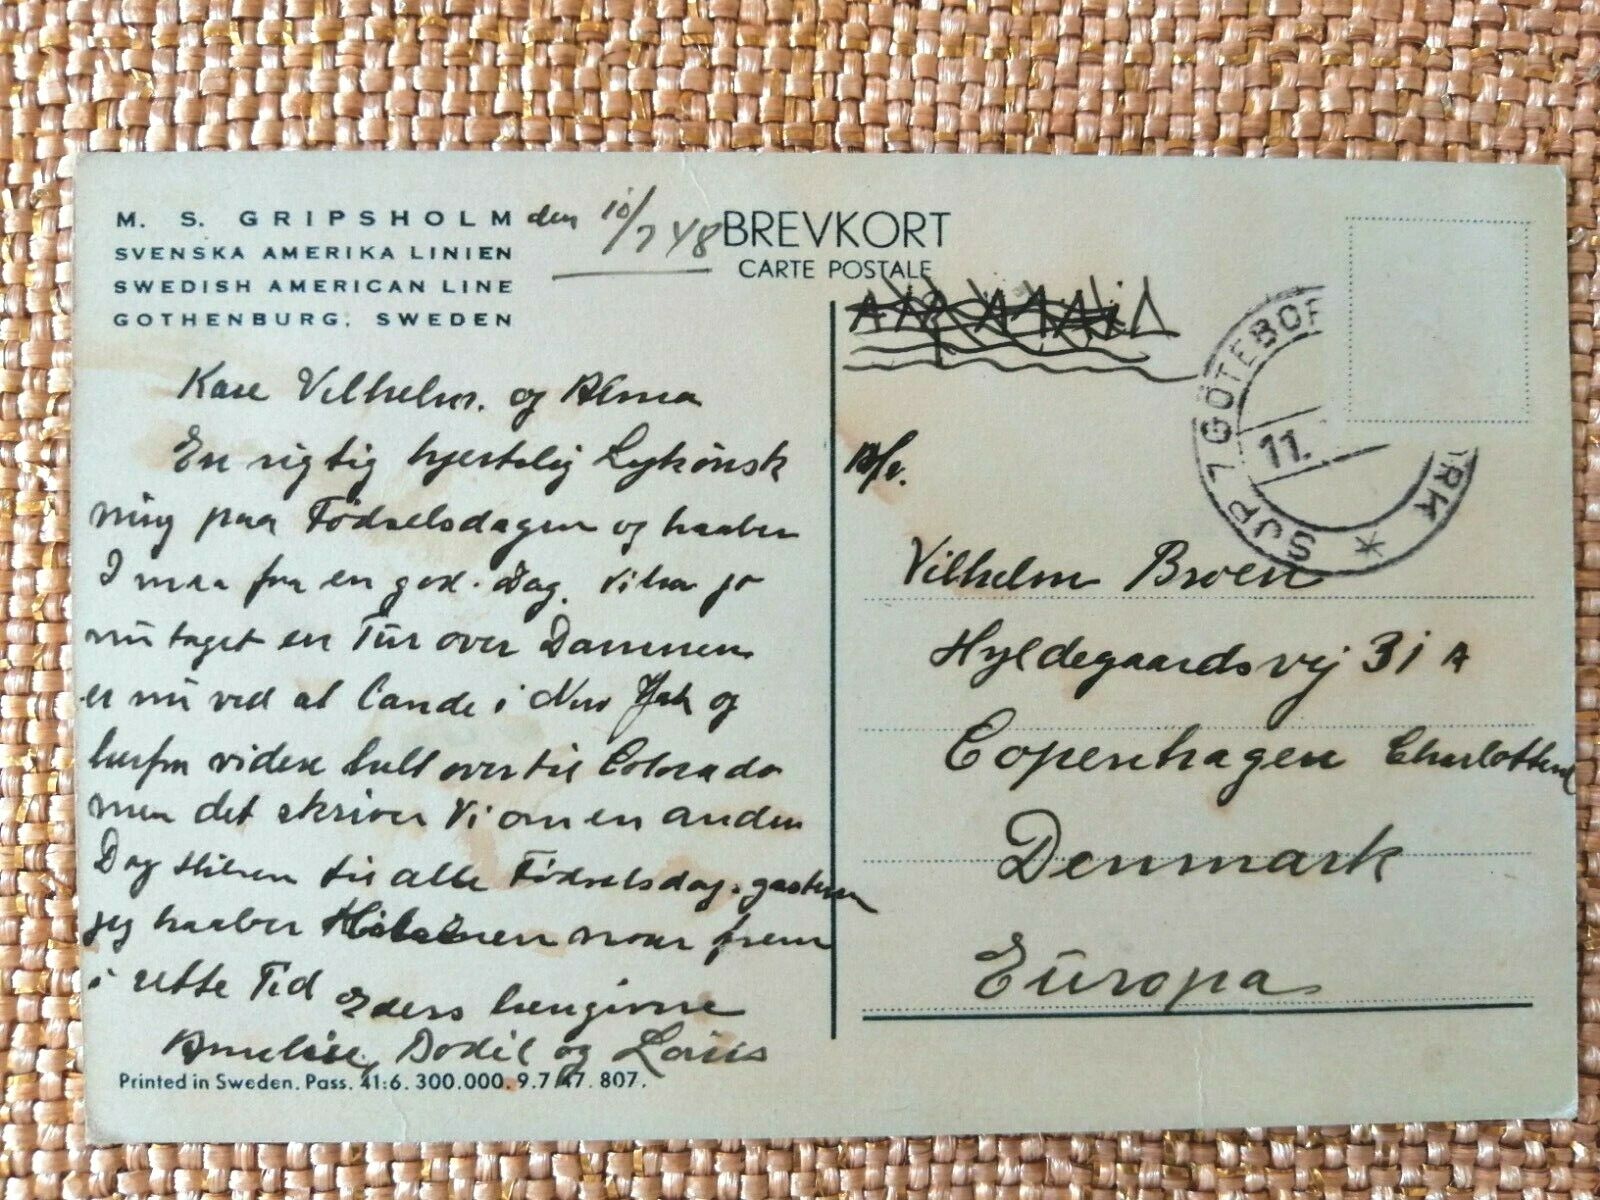 M. S. GRIPSHOLM den 10/7 48
SVENSKA AMERIKA LINIEN
SWEDISH AMERICAN LINE
GOTHENBURG, SWEDEN
BREVKORT
CARTE POSTALE
Kære Vilhelm. og Alma
En rigtig hjertelig Lykönsk
ning paa Födselsdagen og haaber
I maa faa en god. Dag. Vi har jo
nu taget en Tur over Dammen
er nu ved at lande i New York og
herfra videre helt over til Colorado
men det skriver Vi om en anden
Dag Hilsen til alle Födselsdags gæsterne
jeg haaber Hilsenen naar frem
i rette Tid
Eders hengivne
Amelie, Bodil og Louis
Printed in Sweden. Pass. 41:6. 300.000. 9.7.47. 807.
SJP 7 GÖTEBOR
RK *
11.
Vilhelm Broen
Hyldegaardsvej 31 A
Copenhagen Charlottenl
Denmark
Europa